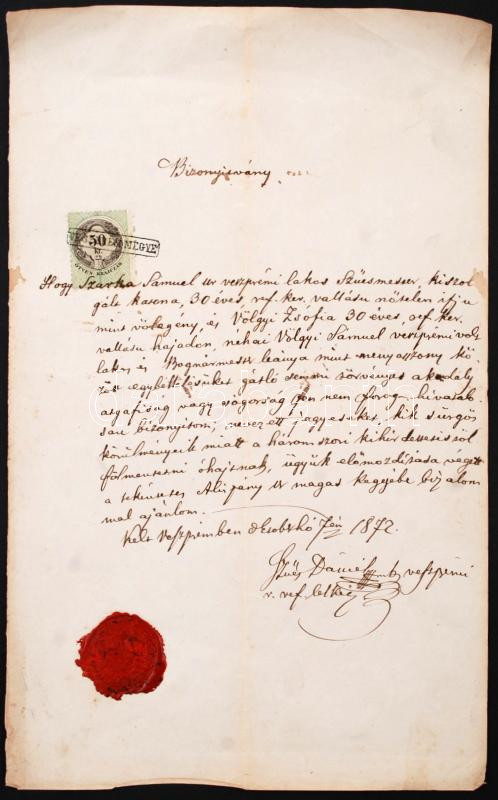 Bizonyitvány
50
kr
ÖTVEN KRAJCZÁR
VESZPRÉMMEGYE
Hogy Szarka Samuel ur veszprémi lakos Szücsmester, kiszol
gált katona, 30 éves, ref. ker. vallásu nőtelen ifju
mint vőlegény, és Völgyi Zsofia 30 éves, ref. ker.
vallásu hajadon, néhai Völgyi Samuel veszprémi volt
lakos és Bognármester leánya mint menyasszony kö
zött egybekelésüket gátló semmi törvényes akadály
atyafiság vagy sógorság fen nem forog, hivatalo
san bizonyitom; nevezett jegyeseket, kik sürgős
körülményeik miatt a háromszori kihirdettetéstől
fölmentetni óhajtnak, ügyük előmozditása végett
a tekintetes Alispány ur magas kegyébe bizalom
mal ajánlom.
Kelt Veszprémben 7én 1872.
Szűcs Dániel veszprémi
r. ref. lelkész